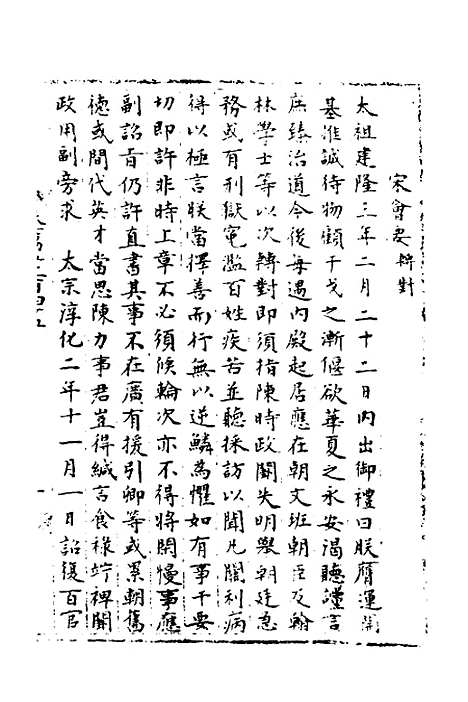 宋會要轉對
太祖建隆三年二月二十二日內出御禮曰朕膺運開
基推誠待物顧干戈之漸偃欲華夏之永安渴聽讜言
庶臻治道今後每遇內殿起居應在朝文班朝臣及翰
林學士等以次轉對即須指陳時政闕失明舉朝廷急
務或有刑獄寃濫百姓疾苦並聽採訪以聞凡關利病
得以極言朕當擇善而行無以逆鱗為懼如有事干要
切即許非時上章不必須候輪次亦不得將閑慢事應
副詔旨仍許直書其事不在廣有援引卿等或累朝舊
德或間代英才當思陳力事君豈得緘言食祿竚裨闕
政用副旁求　太宗淳化二年十一月一日詔復百官